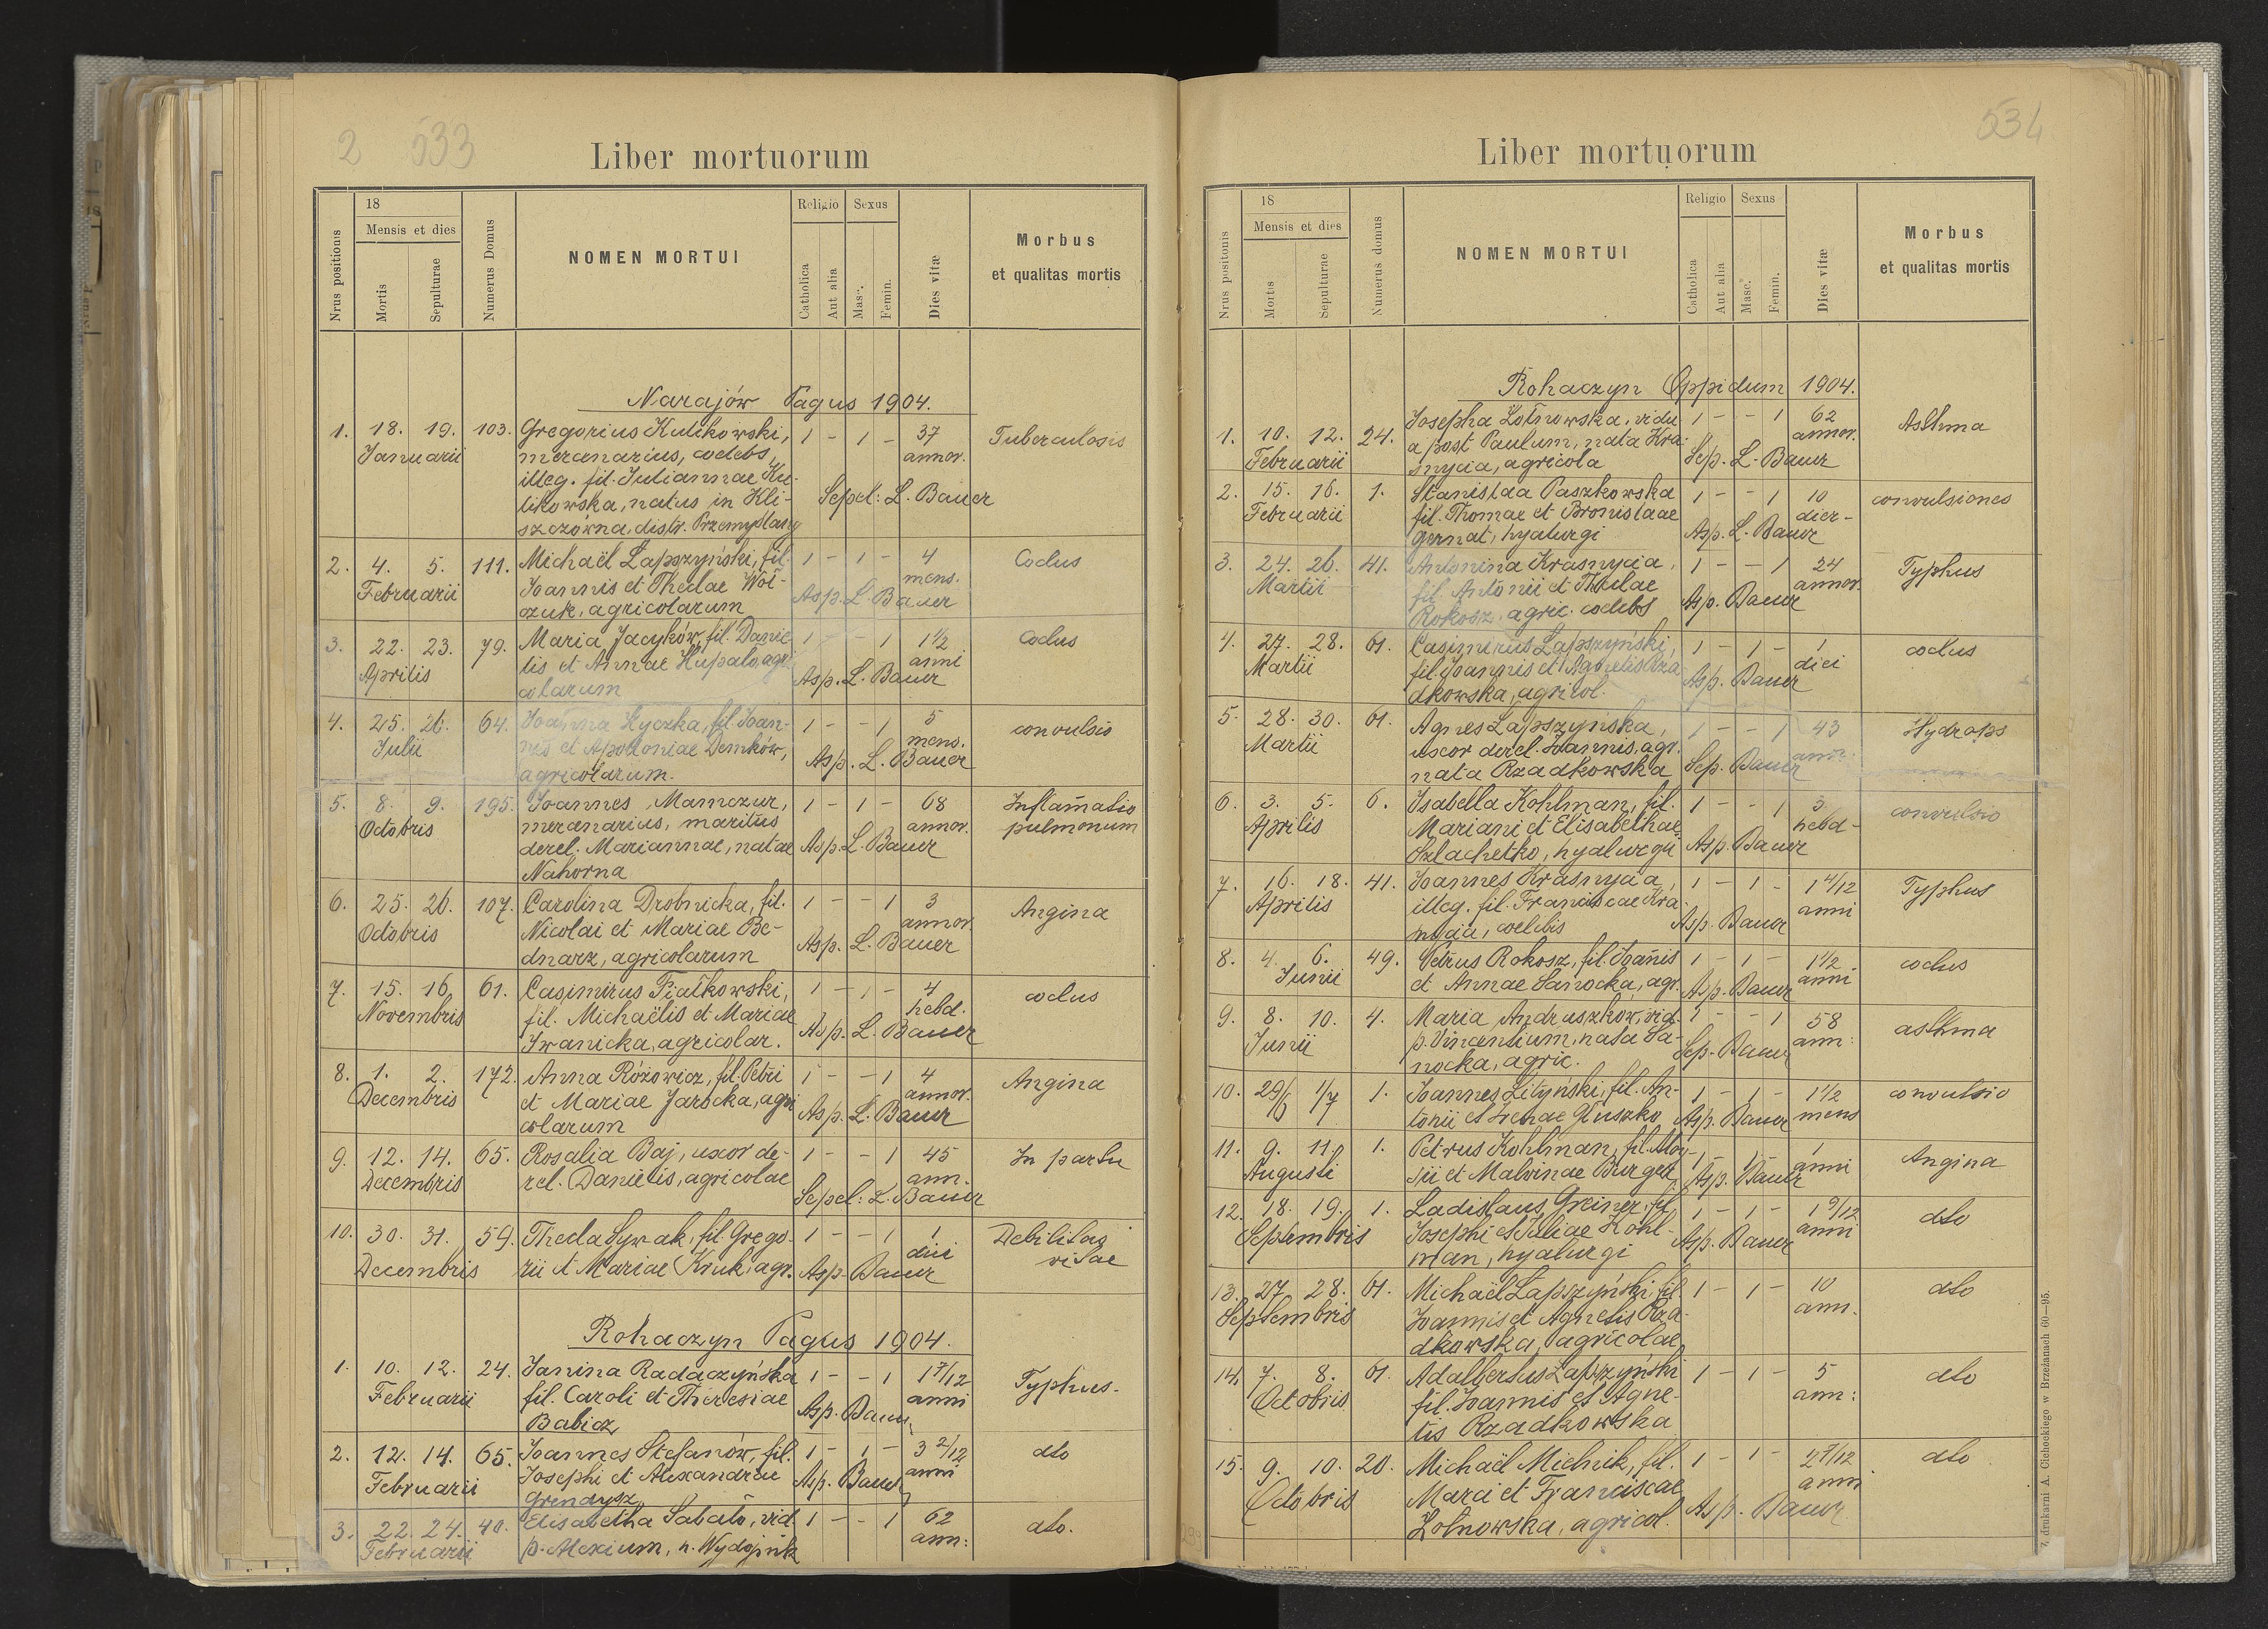 2 533
Liber mortuorum
Nrus positionis
18
Mensis et dies
Mortis
Sepulturae
Numerus Domus
NOMEN MORTUI
Religio
Sexus
Catholica
Aut alia
Masc.
Femin.
Dies vitæ
Morbus
et qualitas mortis
Narajów Pagus 1904.
1. 18. 19. 103. Gregorius Kulikowski, 1 - 1 - 37 Tuberculosis
Januarii mercenarius, coelebs, annor.
illeg. fil. Juliannae Ku-
likowska, natus in Kli- Sepel: L. Bauer
szczówna, distr. Przemyślany
2. 4. 5. 111. Michaël Lapszyński, fil. 1 - 1 - 4 Coclus
Februarii Joannis et Theclae Woł- mens.
czuk, agricolarum Asp. L. Bauer
3. 22. 23. 79. Maria Jacyków, fil. Danie- 1 - - 1 1 1/2 Coclus
Aprilis lis et Annae Hupalo, agri- anni
colarum Asp. L. Bauer
4. 25. 26. 64. Joanna Kyczka, fil. Joan- 1 - - 1 5 convulsio
Julii nis et Apoloniae Demków, mens.
agricolarum. Asp. L. Bauer
5. 8. 9. 195. Joannes Mamczur, 1 - 1 - 68 Inflam̄atio
Octobris mercenarius, maritus annor. pulmonum
derel. Mariannae, natae Asp. L. Bauer
Nahorna
6. 25. 26. 107. Carolina Drobnicka, fil. 1 - - 1 3 Angina
Octobris Nicolai et Mariae Be- annor.
dnarz, agricolarum Asp. L. Bauer
7. 15. 16. 61. Casimirus Fiałkowski, 1 - 1 - 4 coclus
Novembris fil. Michaëlis et Mariae hebd.
Iwanicka, agricolar. Asp. L. Bauer
8. 1. 2. 172. Anna Rózowicz, fil. Petri 1 - - 1 4 Angina
Decembris et Mariae Jarocka, agri annor.
colarum Asp. L. Bauer
9. 12. 14. 65. Rosalia Baj, uxor de- 1 - - 1 45 In partu
Decembris rel. Danielis, agricolae ann.
Sepel: L. Bauer
10. 30. 31. 59. Thecla Sywak, fil. Grego- 1 - - 1 1 Debilitas
Decembris rii et Mariae Kruk, agr. Asp. Bauer diei vitae
Rohaczyn Pagus 1904.
1. 10. 12. 24. Janina Radaczyńska 1 - - 1 1 7/12 Typhus.
Februarii fil. Caroli et Theresiae anni
Babicz Asp. Bauer
2. 12. 14. 65. Joannes Stefanów, fil. 1 - 1 - 3 2/12 dto
Februarii Josephi et Alexandrae Asp. Bauer anni
Grendysz
3. 22. 24. 40. Elisabetha Sabato, vid. 1 - - 1 62 dto.
Februarii p. Alexium, n. ann:
534
Liber mortuorum
Nrus positonis
18
Mensis et dies
Mortis
Sepulturae
Numerus domus
NOMEN MORTUI
Religio
Sexus
Catholica
Aut alia
Masc.
Femin.
Dies vitæ
Morbus
et qualitas mortis
Rohaczyn Oppidum 1904.
1. 10. 12. 24. Josepha Zołnowska, vidu 1 - - 1 62 Asthma
Februarii a post Paulum, nata Kra- annor.
snycia, agricola Sep. L. Bauer
2. 15. 16. 1. Stanislaa Paszkowska 1 - - 1 10 convulsiones
Februarii fil. Thomae et Bronislaae dier-
Gernat, hyalurgi Asp. L. Bauer
3. 24. 26. 41. Antonina Krasnycia, 1 - - 1 24 Typhus
Martii fil. Antonii et Theclae annor.
Rokosz, agric. coelebs Asp. Bauer
4. 27. 28. 61. Casimirus Lapszyński, 1 - 1 - 1 coclus
Martii fil. Joannis et Agnetis Rza- diei
dkowska, agricol. Asp. Bauer
5. 28. 30. 61. Agnes Lapszyńska, 1 - - 1 43 Hydrops
Martii uxor derel. Joannis, agr. ann:
nata Rzadkowska Sep. Bauer
6. 3. 5. 6. Isabella Kohlman, fil. 1 - - 1 3 convulsio
Aprilis Mariani et Elisabethae hebd-
Szlachetko, hyalurgii Asp. Bauer
7. 16. 18. 41. Joannes Krasnycia, 1 - 1 - 1 4/12 Typhus
Aprilis illeg. fil. Franciscae Kra anni
coelibis Asp. Bauer
8. 4. 6. 49. Petrus Rokosz, fil. Joan̄is 1 - 1 - 1 1/2 coclus
Junii et Annae Sanocka, agr. Asp. Bauer anni
9. 8. 10. 4. Maria Andruszków, vid. 1 - - 1 58 asthma
Junii p. Vincentium, nata Sa- ann:
nocka, agric. Sep. Bauer
10. 29/6 1/7 1. Joannes Lityński, fil. An- 1 - 1 - 1 1/2 convulsio
tonii et Irenae Głuszko Asp. Bauer mens
11. 9. 11. 1. Petrus Kohlman, fil. Aloy- 1 - 1 - 1 Angina
Augusti sii et Malvinae Burger Asp. Bauer anni
12. 18. 19. 1. Ladislaus Greiner, fil. 1 - 1 - 1 9/12 dto
Septembris Josephi et Juliae Kohl- anni
man, hyalurgi Asp. Bauer
13. 27. 28. 61. Michaël Lapszyński, fil. 1 - 1 - 10 dto
Septembris Joannis et Agnetis Rza- ann.
dkowska, agricolae
14. 7. 8. 61. Adalbertus Lapszyński 1 - 1 - 5 dto
Octobris fil. Joannis et Agne- ann:
tis Rzadkowska
15. 9. 10. 20. Michaël Michnik, fil. 1 - 1 - 2 7/12 dto
Octobris Marci et Franciscae ann.
Zołnowska, agricol. Asp. Bauer
Z drukarni A. Cichockiego w Brzeżanach 60—95.